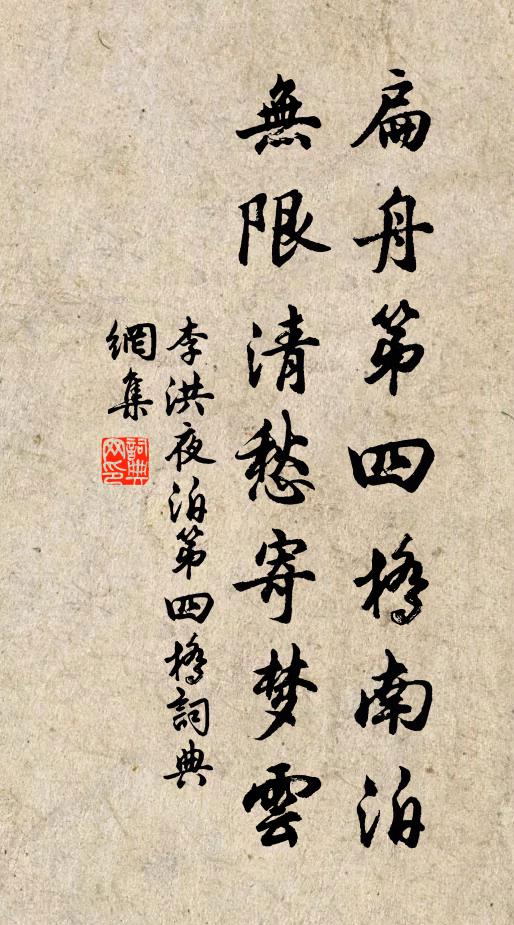 扁舟第四橋南泊
無限清愁寄梦雲
李洪夜泊第四橋詞典
網集
詞典
网印